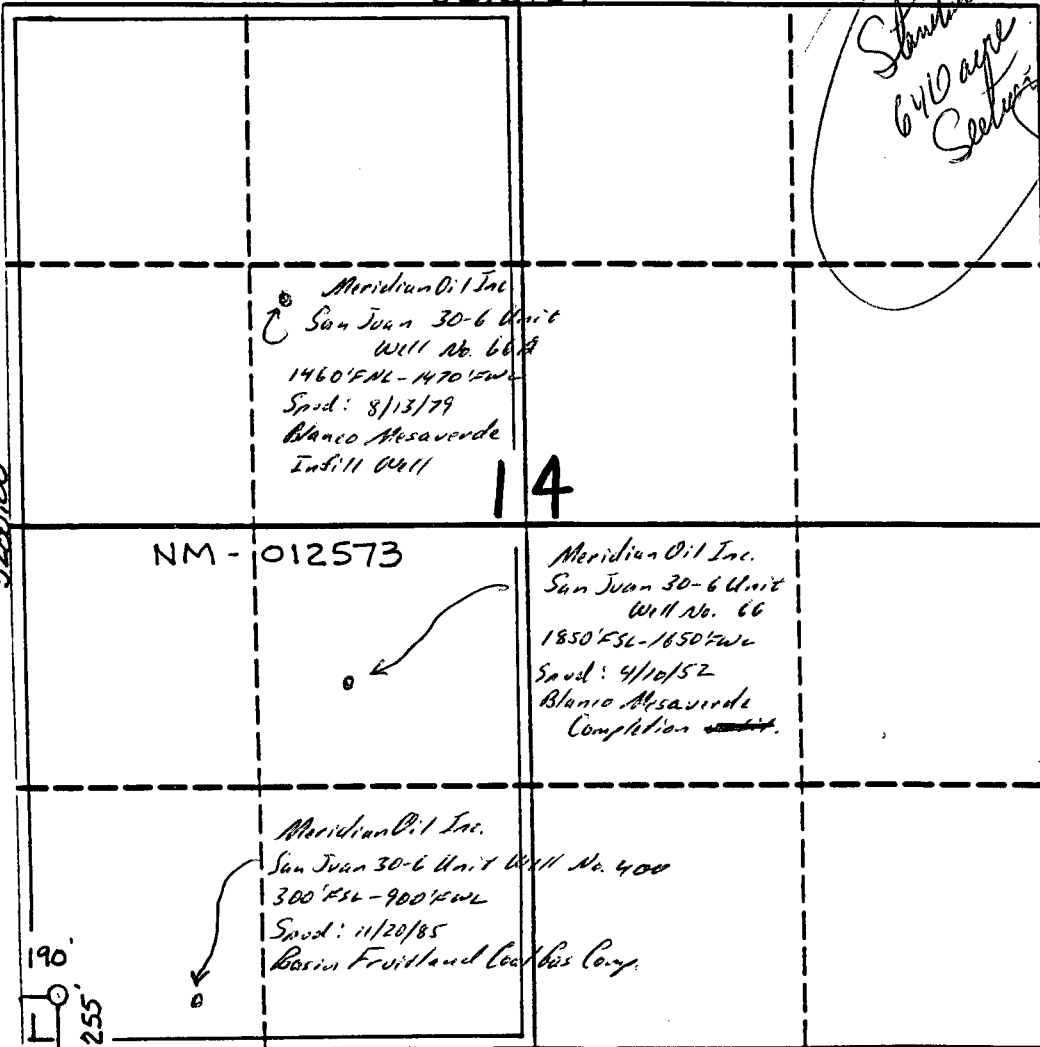 640 acre
Meridian Oil Inc
San Juan 30-6 Unit
Well No. 66A
1460'FNL-1470'FWL
Spud: 8/13/79
Blanco Mesaverde
Infill Well
14
NM-012573
Meridian Oil Inc.
San Juan 30-6 Unit
Well No. 66
1850'FSL-1650'FWL
Spud: 4/10/52
Blanco Mesaverde
Completion
Meridian Oil Inc.
San Juan 30-6 Unit Well No. 400
300'FSL-900'FWL
Spud: 11/20/85
Basin Fruitland Coal Gas Comp.
190'
255'